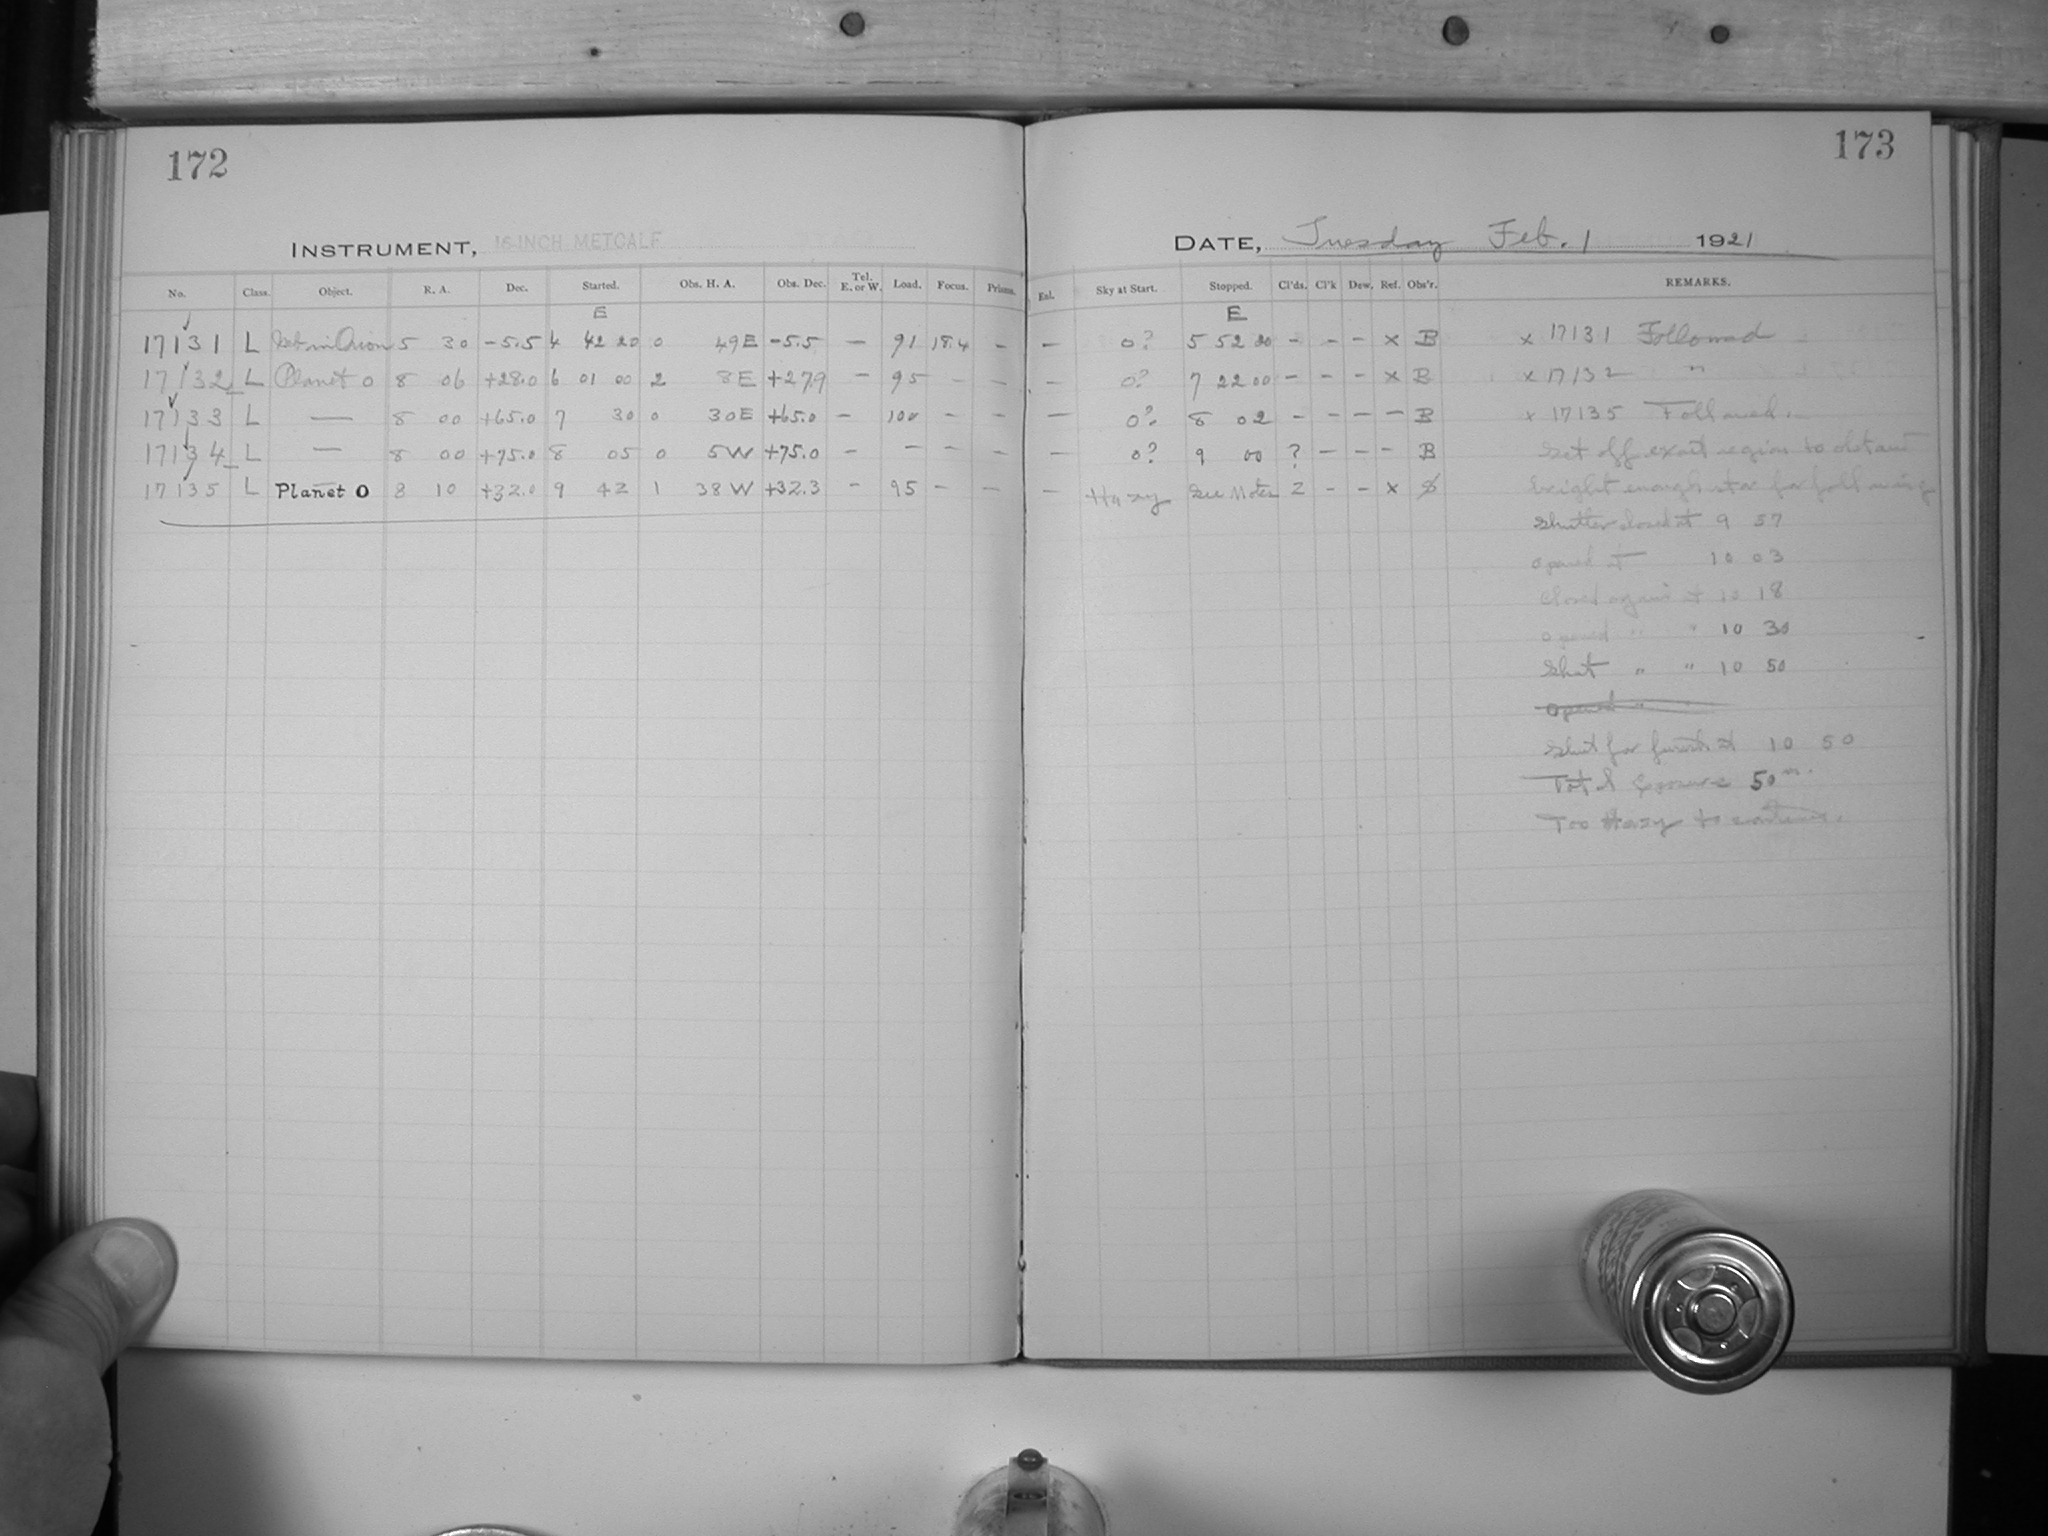 172
173
INSTRUMENT, 16-INCH METCALF
DATE, Tuesday Feb. 1 1921
No. Class. Object. R. A. Dec. Started. Obs. H. A. Obs. Dec. Tel. E. or W. Load. Focus. Prisms. Sky at Start. Stopped. Cl'ds. Cl'k Dew. Ref. Obs'r. REMARKS.
E E
17131 L in Orion 5 30 -5.5 4 42 20 0 49E -5.5 — 91 18.4 — — 0? 5 52 20 - - - x B x 17131 Followed
17132 L Planet O 8 06 +28.0 6 01 00 2 8E +27.9 — 95 — — — 0? 7 22 00 - - - x B x 17132 "
17133 L — 8 00 +65.0 7 30 0 30E +65.0 — 100 — — — 0? 8 02 - - - - B x 17135 Followed.
17134 L — 8 00 +75.0 8 05 0 5W +75.0 — — — — — 0? 9 00 ? - - - B Set off exact region to obtain
17135 L Planet O 8 10 +32.0 9 42 1 38W +32.3 — 95 — — — Hazy See Notes 2 - - x bright enough star for following
Shutter closed at 9 57
opened at 10 03
Closed again at 10 18
opened " " 10 30
Shut " " 10 50
opened " "
Shut for at 10 50
Total Exposure 50m.
Too Hazy to continue.